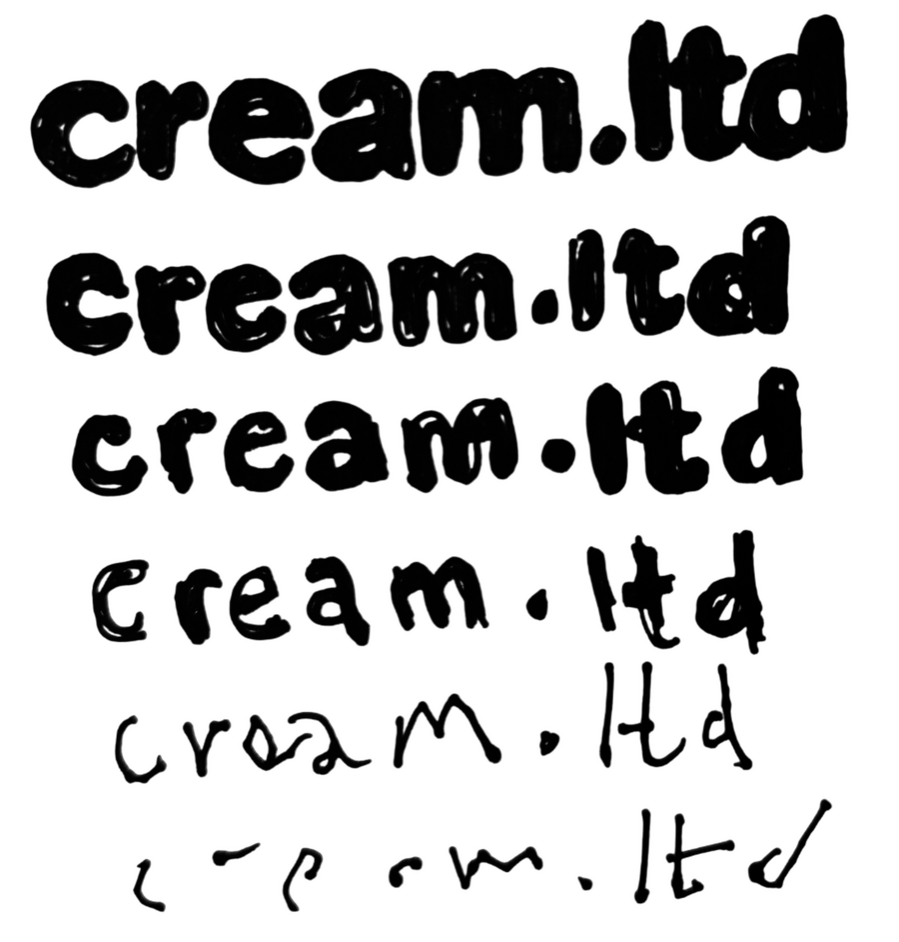 cream.ltd
cream.ltd
cream.ltd
cream.ltd
cream.ltd
cream.ltd